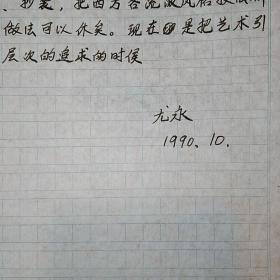 、抄袭，把西方各流派风格技法
做法可以休矣。现在是把艺术引
层次的追求的时候
尤永
1990、10.